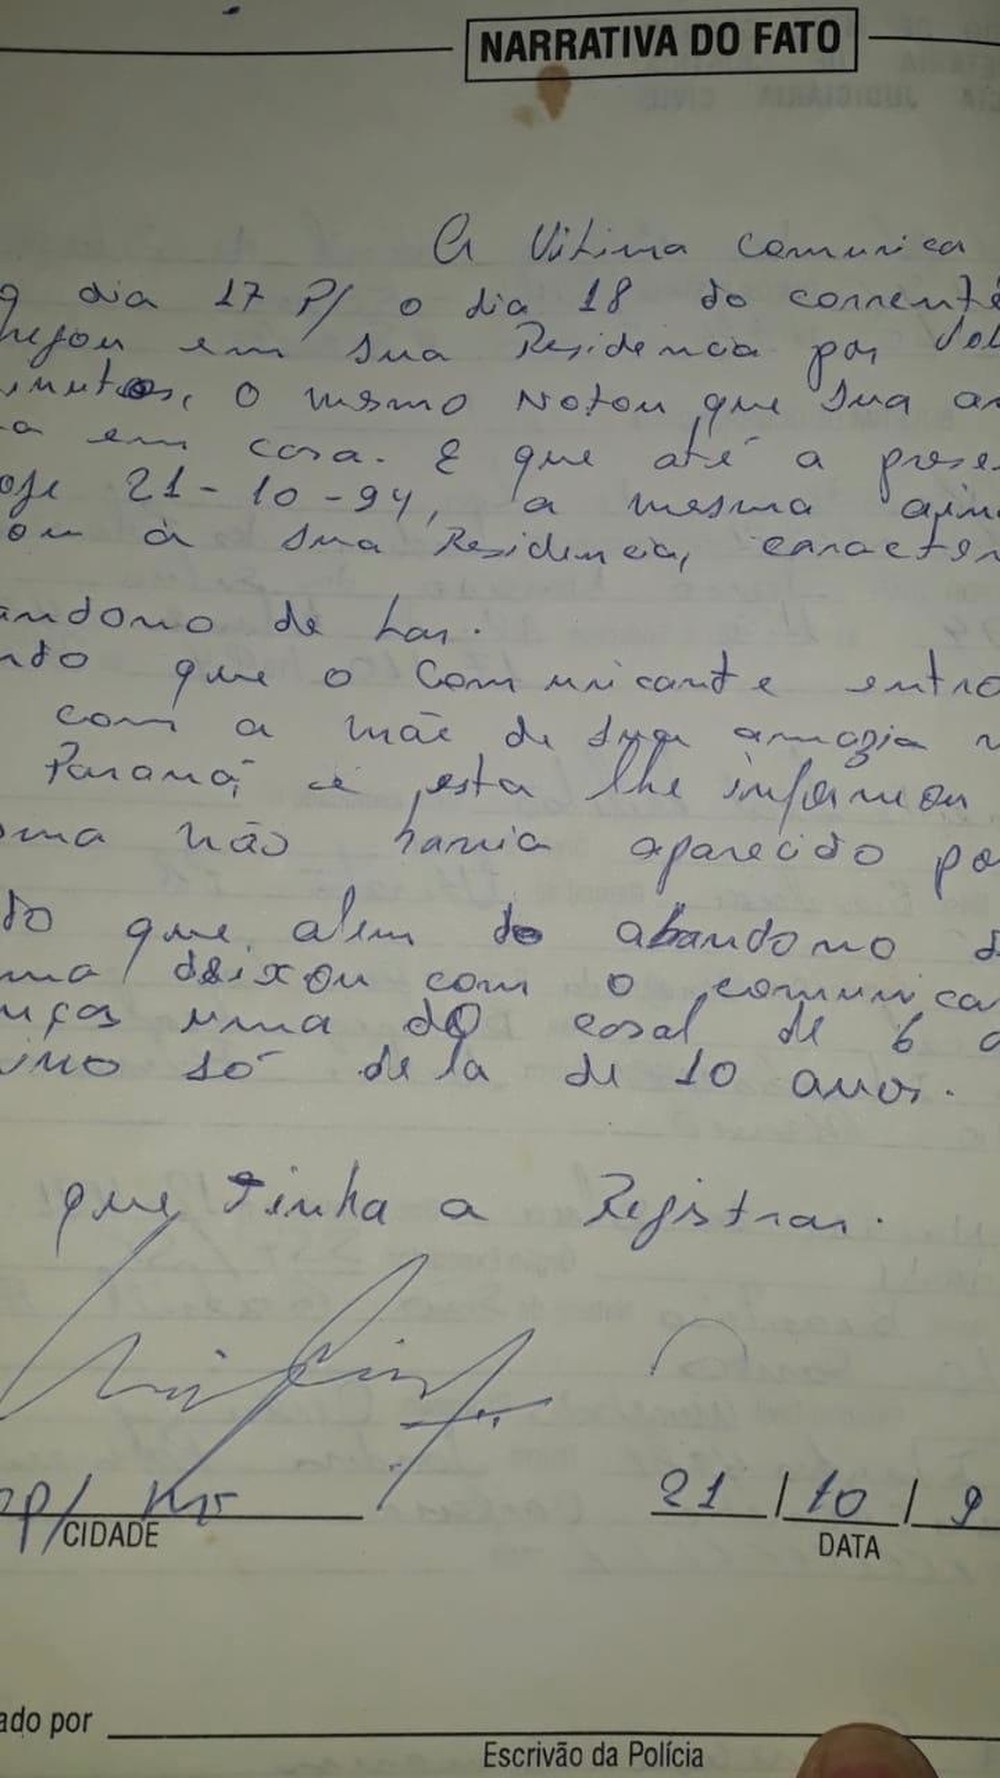 NARRATIVA DO FATO
A Vitima comunica
dia 17 P/ o dia 18 do corrente
em sua Residencia por Vol
minutos, O mesmo Notou que sua
em casa. E que até a prese
21-10-94, a mesma ain
ou à sua Residencia, caracter
andono de Lar.
ndo que o Comunicante entro
com a mãe de sua amazia
Paraná, e esta lhe informou
não havia aparecido por
do que alem do abandono d
ma deixou com o comunica
nças uma do casal de 6 a
só dela de 10 anos.
que tinha a Registrar.
op/ MT
21 / 10 / 9
CIDADE
DATA
ado por
Escrivão da Polícia